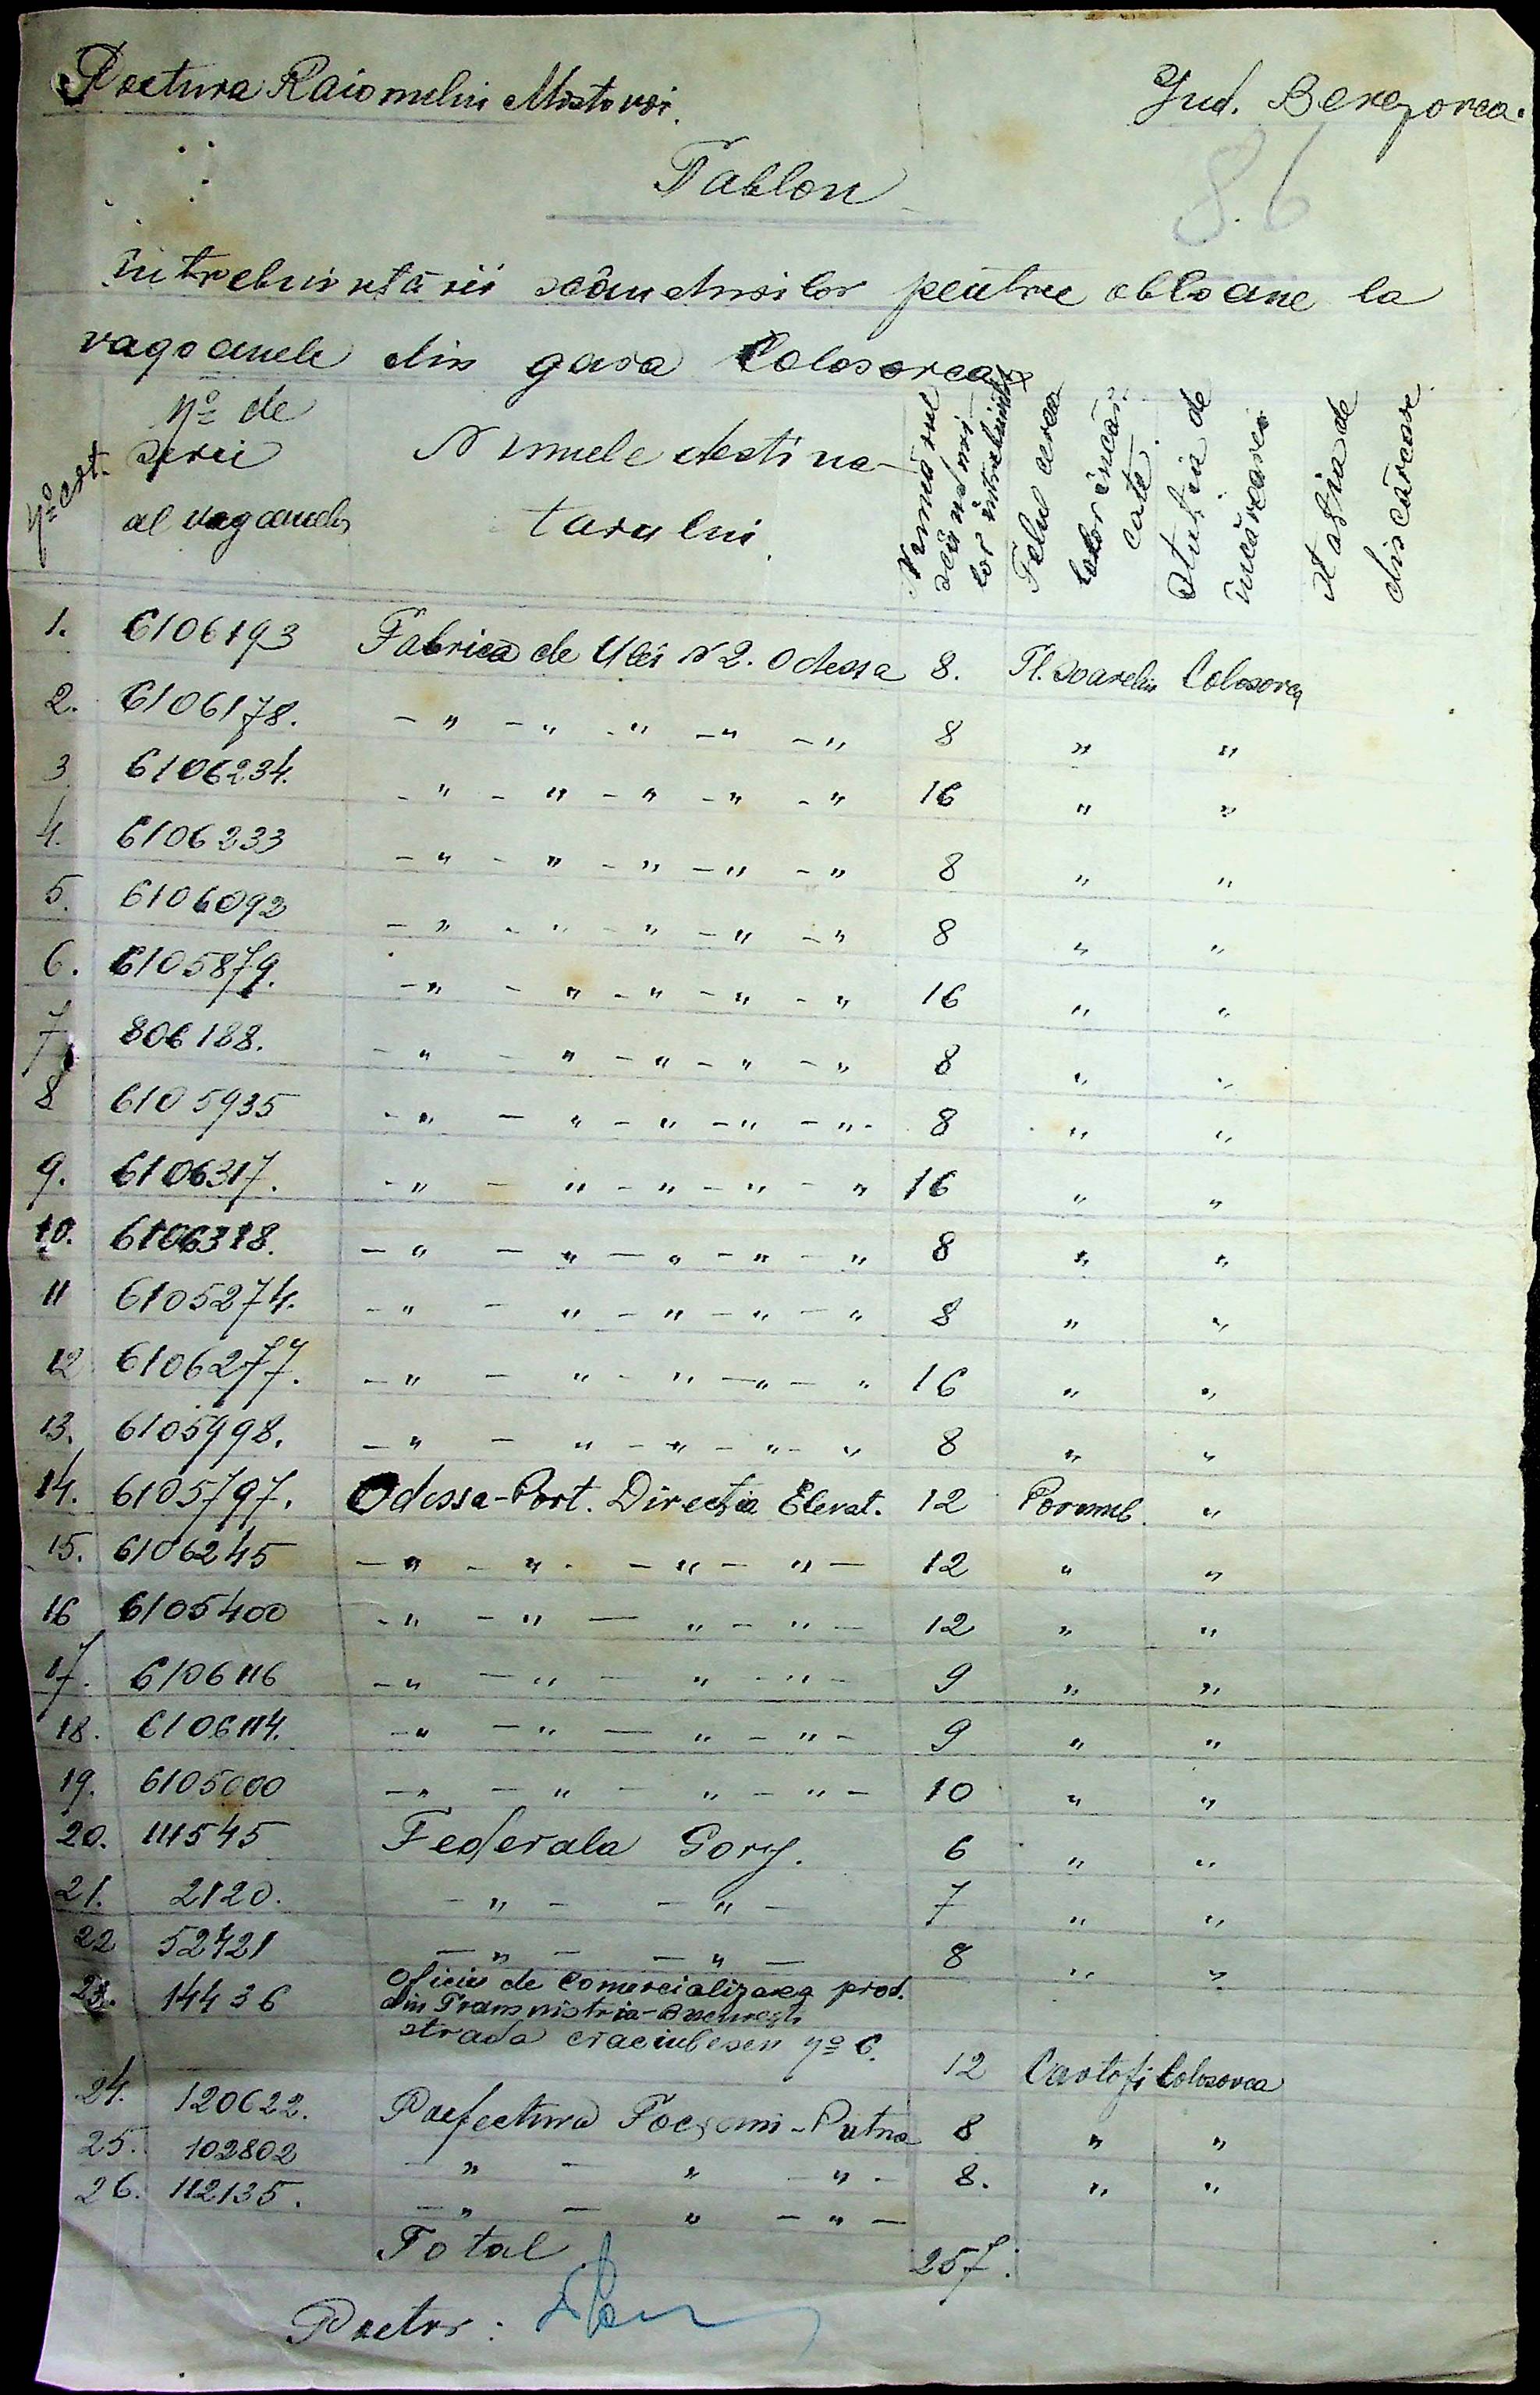 Pretura Raionului Mostovoi.
Jud. Berezovca.
86
Tablou
întrebuințării scândurilor pentru obloane la
vagoanele din gara Colosovca
No crt. No de serii al vagoanelor Numele destinatarului Numărul scândurilor întrebuințate Felul cerealelor încărcate Stația de încărcarea Stația de discărcare
1. 6106193 Fabrica de Ulei N 2. Odessa 8. Fl. soarelui Colosovca
2. 6106178. - " - " - " - " - " 8 " "
3 6106234. - " - " - " - " - " 16 " "
4. 6106233 - " - " - " - " - " 8 " "
5. 6106092 - " - " - " - " - " 8 " "
6. 6105879. - " - " - " - " - " 16 " "
7 806188. - " - " - " - " - " 8 " "
8 6105935 - " - " - " - " - " - 8 " "
9. 6106317. - " - " - " - " - " 16 " "
10. 6106318. - " - " - " - " - " 8 " "
11 6105274. - " - " - " - " - " 8 " "
12 6106277. - " - " - " - " - " 16 " "
13. 6105998. - " - " - " - " - " 8 " "
14. 6105797. Odessa-Port. Direcția Elevat. 12 Porumb. "
15. 6106245 - " - " - " - " - 12 " "
16 6105400 - " - " - " - " - 12 " "
17. 6106116 - " - " - " - " - 9 " "
18. 6106114. - " - " - " - " - 9 " "
19. 6105000 - " - " - " - " - 10 " "
20. 111545 Federala Gorj. 6 " "
21. 2120. - " - - " - 7 " "
22 52421 - " - - " - 8 " "
23. 14436 Oficiu de Comercializarea prod.
din Transnistria-București
strada No 6. 12 Cartofi Colosovca
24. 120622. Prefectura Focșani-Putna 8 " "
25. 102802 - " - " - " - 8. " "
26. 112135. - " - " - " -
Total 257.
Pretor: